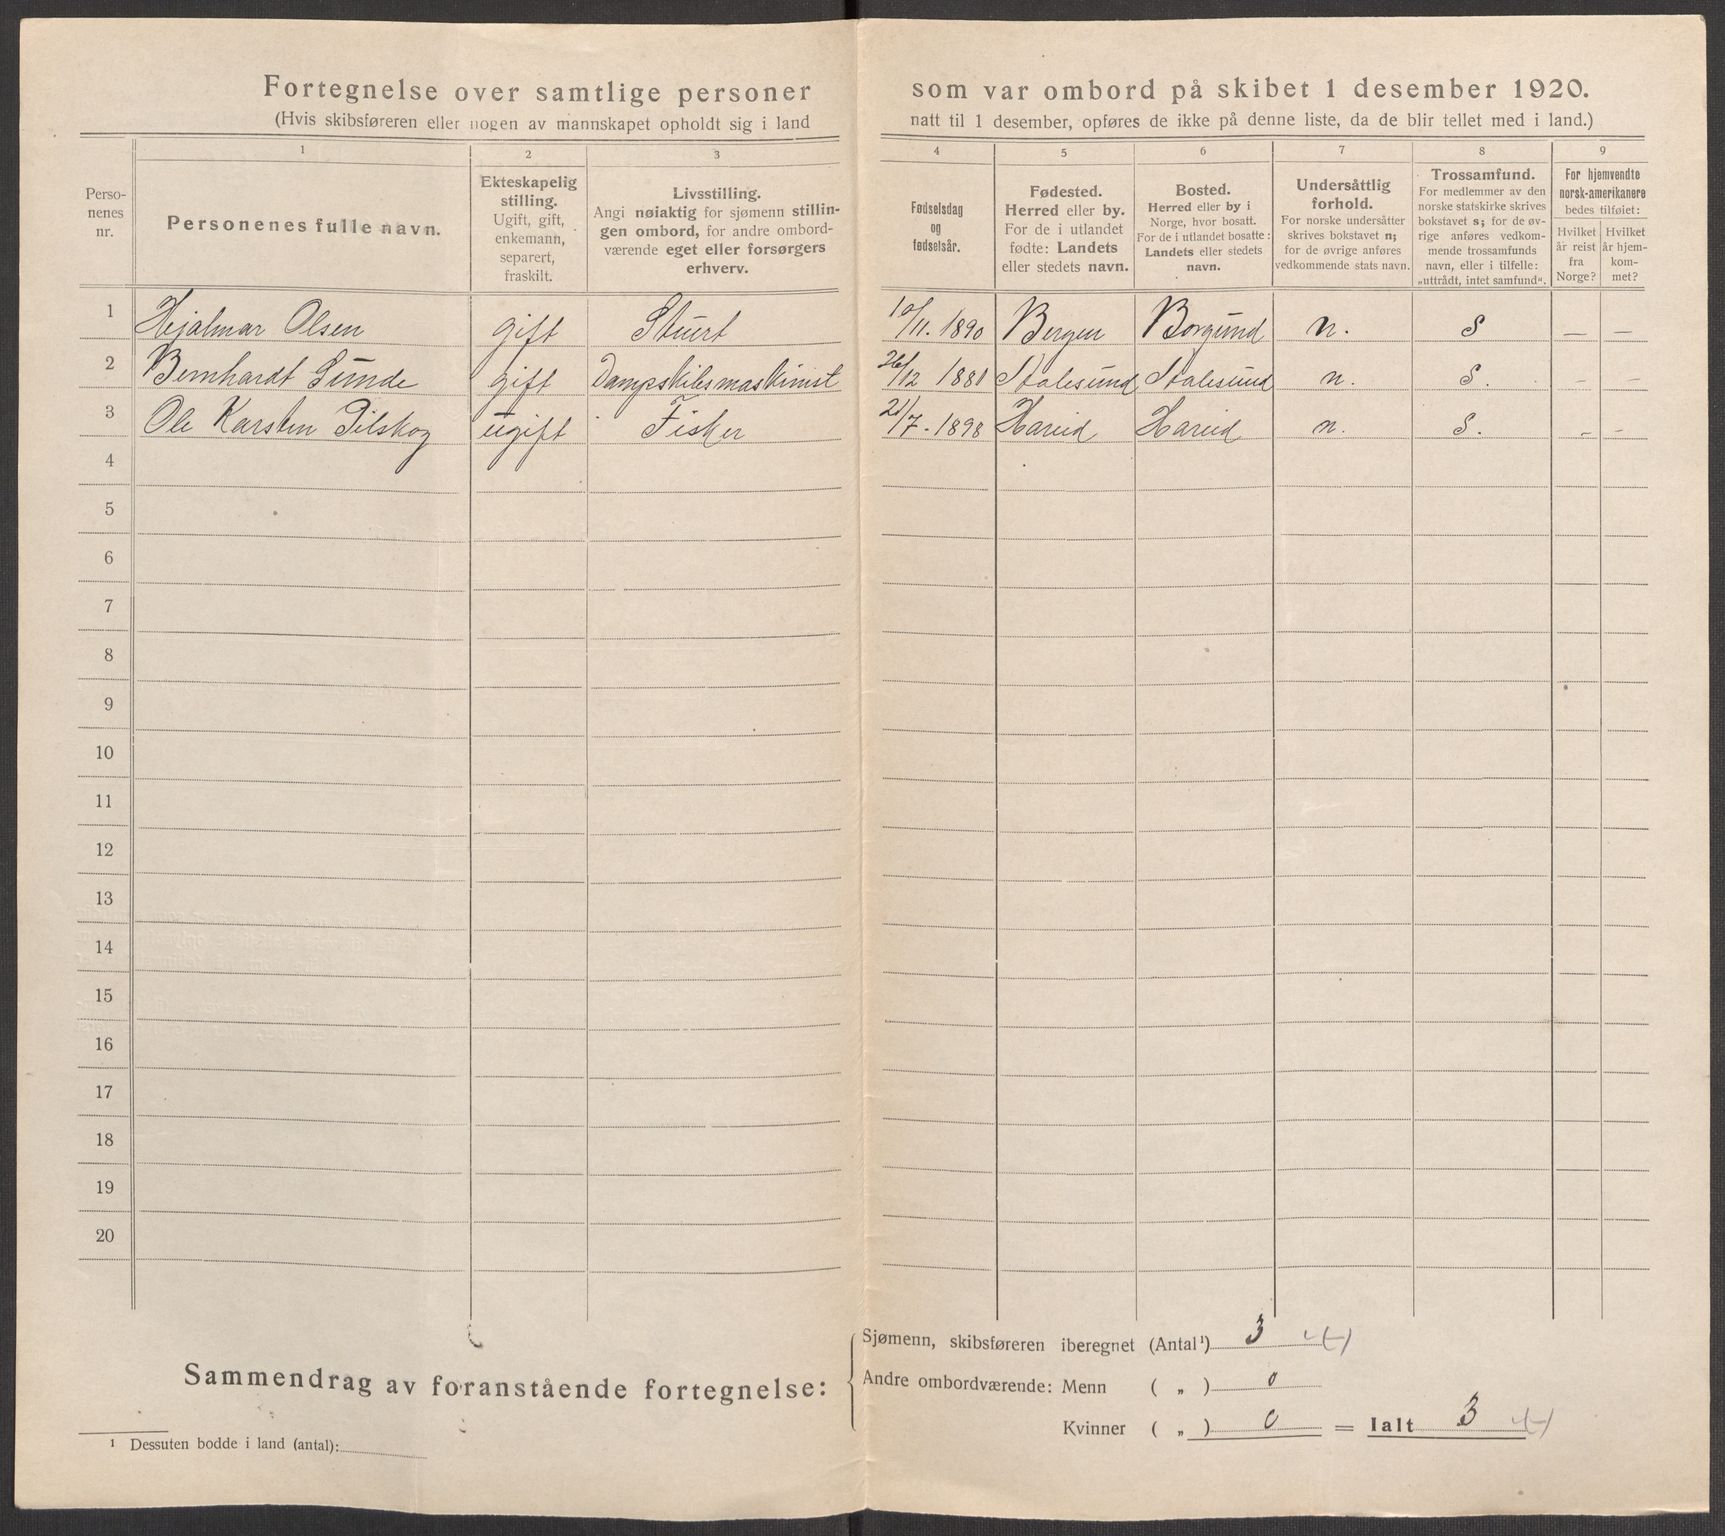 Fortegnelse over samtlige personer som var ombord på skibet 1 desember 1920.
(Hvis skibsføreren eller nogen av mannskapet opholdt sig i land natt til 1 desember, opføres de ikke på denne liste, da de blir tellet med i land.)
1 2 3 4 5 6 7 8 9
Perso-
nenes
nr.
Personenes fulle navn.
Ekteskapelig
stilling.
Ugift, gift,
enkemann,
separert,
fraskilt.
Livsstilling.
Angi nøiaktig for sjømenn stillin-
gen ombord, for andre ombord-
værende eget eller forsørgers
erhverv.
Fødselsdag
og
fødselsår.
Fødested.
Herred eller by.
For de i utlandet
fødte: Landets
eller stedets navn.
Bosted.
Herred eller by i
Norge, hvor bosatt.
For de i utlandet bosatte:
Landets eller stedets
navn.
Undersåttlig
forhold.
For norske undersåtter
skrives bokstavet n;
for de øvrige anføres
vedkommende stats navn.
Trossamfund.
For medlemmer av den
norske statskirke skrives
bokstavet s; for de øv-
rige anføres vedkom-
mende trossamfunds
navn, eller i tilfelle:
„uttrådt, intet samfund".
For hjemvendte
norsk-amerikanere
bedes tilføiet:
Hvilket
år reist
fra
Norge?
Hvilket
år hjem-
kom-
met?
1 Hjalmar Olsen gift Stuert 10/11. 1890 Bergen Borgund n. S — —
2 Bernhardt Sunde gift Dampskibsmaskinist 26/12 1881 Aalesund Aalesund n. S. - -
3 Ole Karsten Pilskog ugift Fisker 21/7 - 1898 Hareid Hareid n. S. - -
4
5
6
7
8
9
10
11
12
13
14
15
16
17
18
19
20
Sammendrag av foranstående fortegnelse:
Sjømenn, skibsføreren iberegnet (Antal¹) 3
Andre ombordværende: Menn ( „ ) 0
Kvinner ( „ ) 0 = Ialt 3
¹ Dessuten bodde i land (antal):